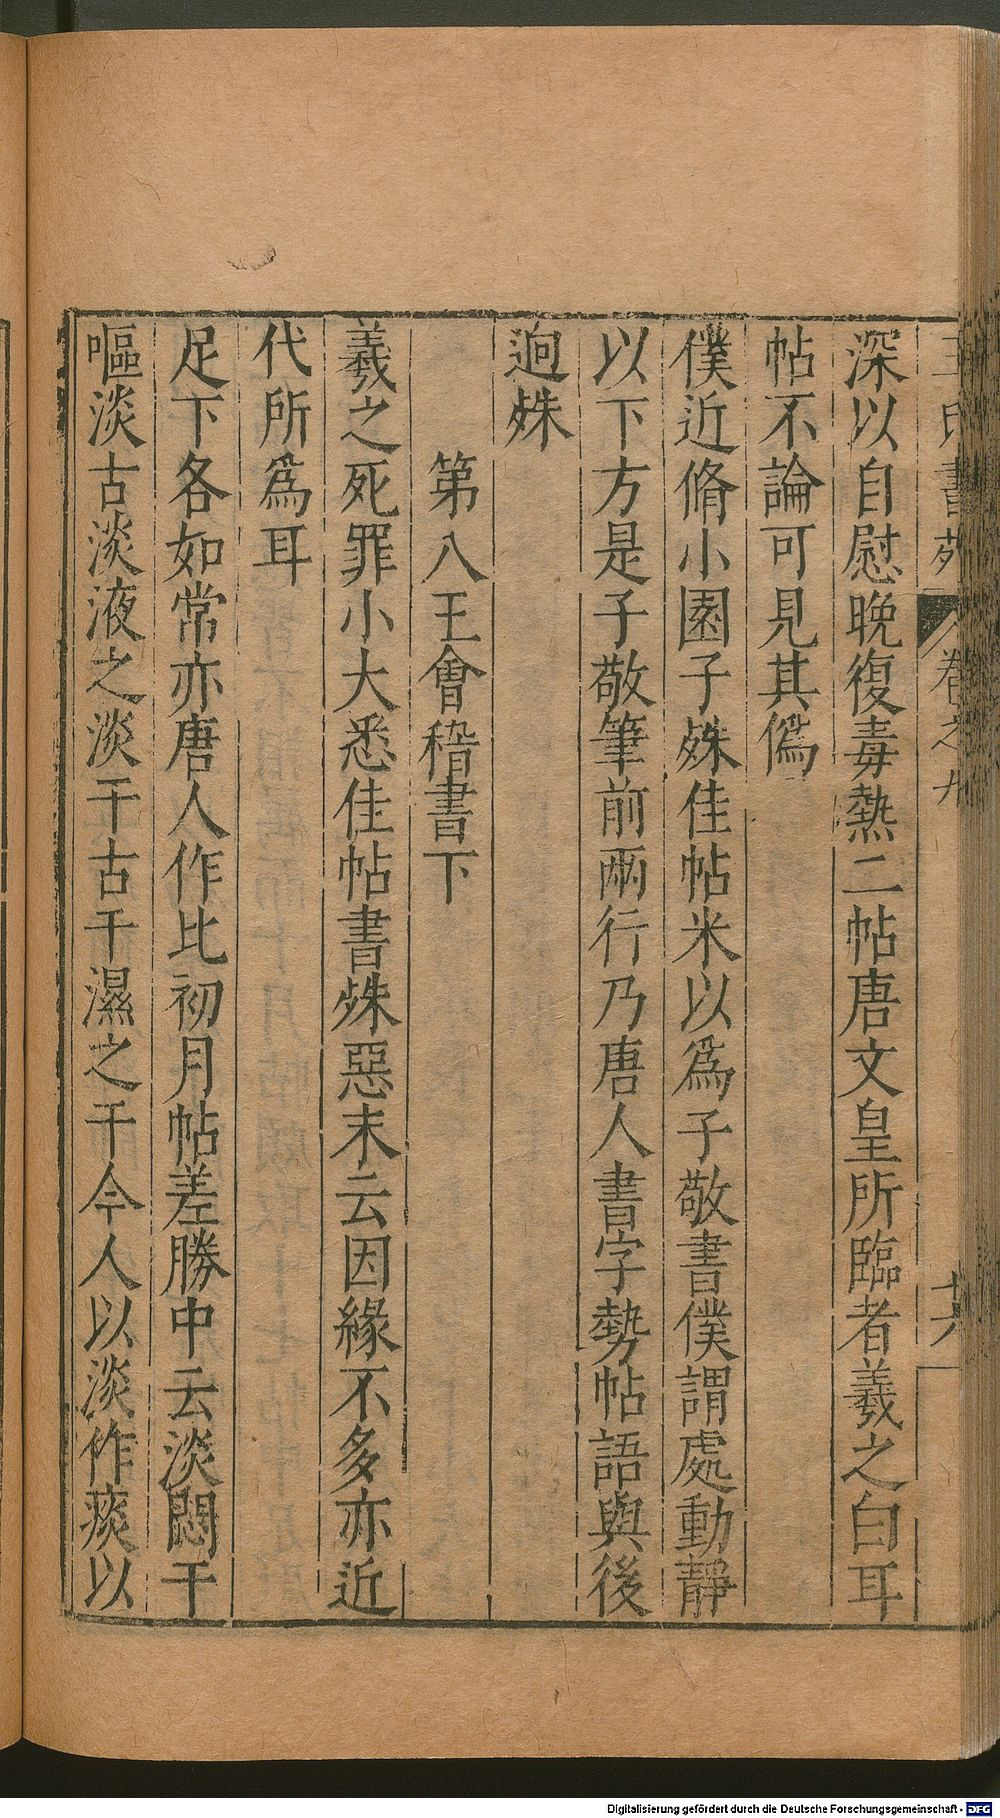 王氏書苑 卷之九 十六
深以自慰晚復毒熱二帖唐文皇所臨者羲之白耳
帖不論可見其偽
僕近脩小園子殊佳帖米以爲子敬書僕謂處動靜
以下方是子敬筆前兩行乃唐人書字勢帖語與後
逈殊
第八王會稽書下
羲之死罪小大悉佳帖書殊惡末云因緣不多亦近
代所爲耳
足下各如常亦唐人作比初月帖差勝中云淡悶干
嘔淡古淡液之淡干古干濕之干今人以淡作痰以
Digitalisierung gefördert durch die Deutsche Forschungsgemeinschaft - DFG